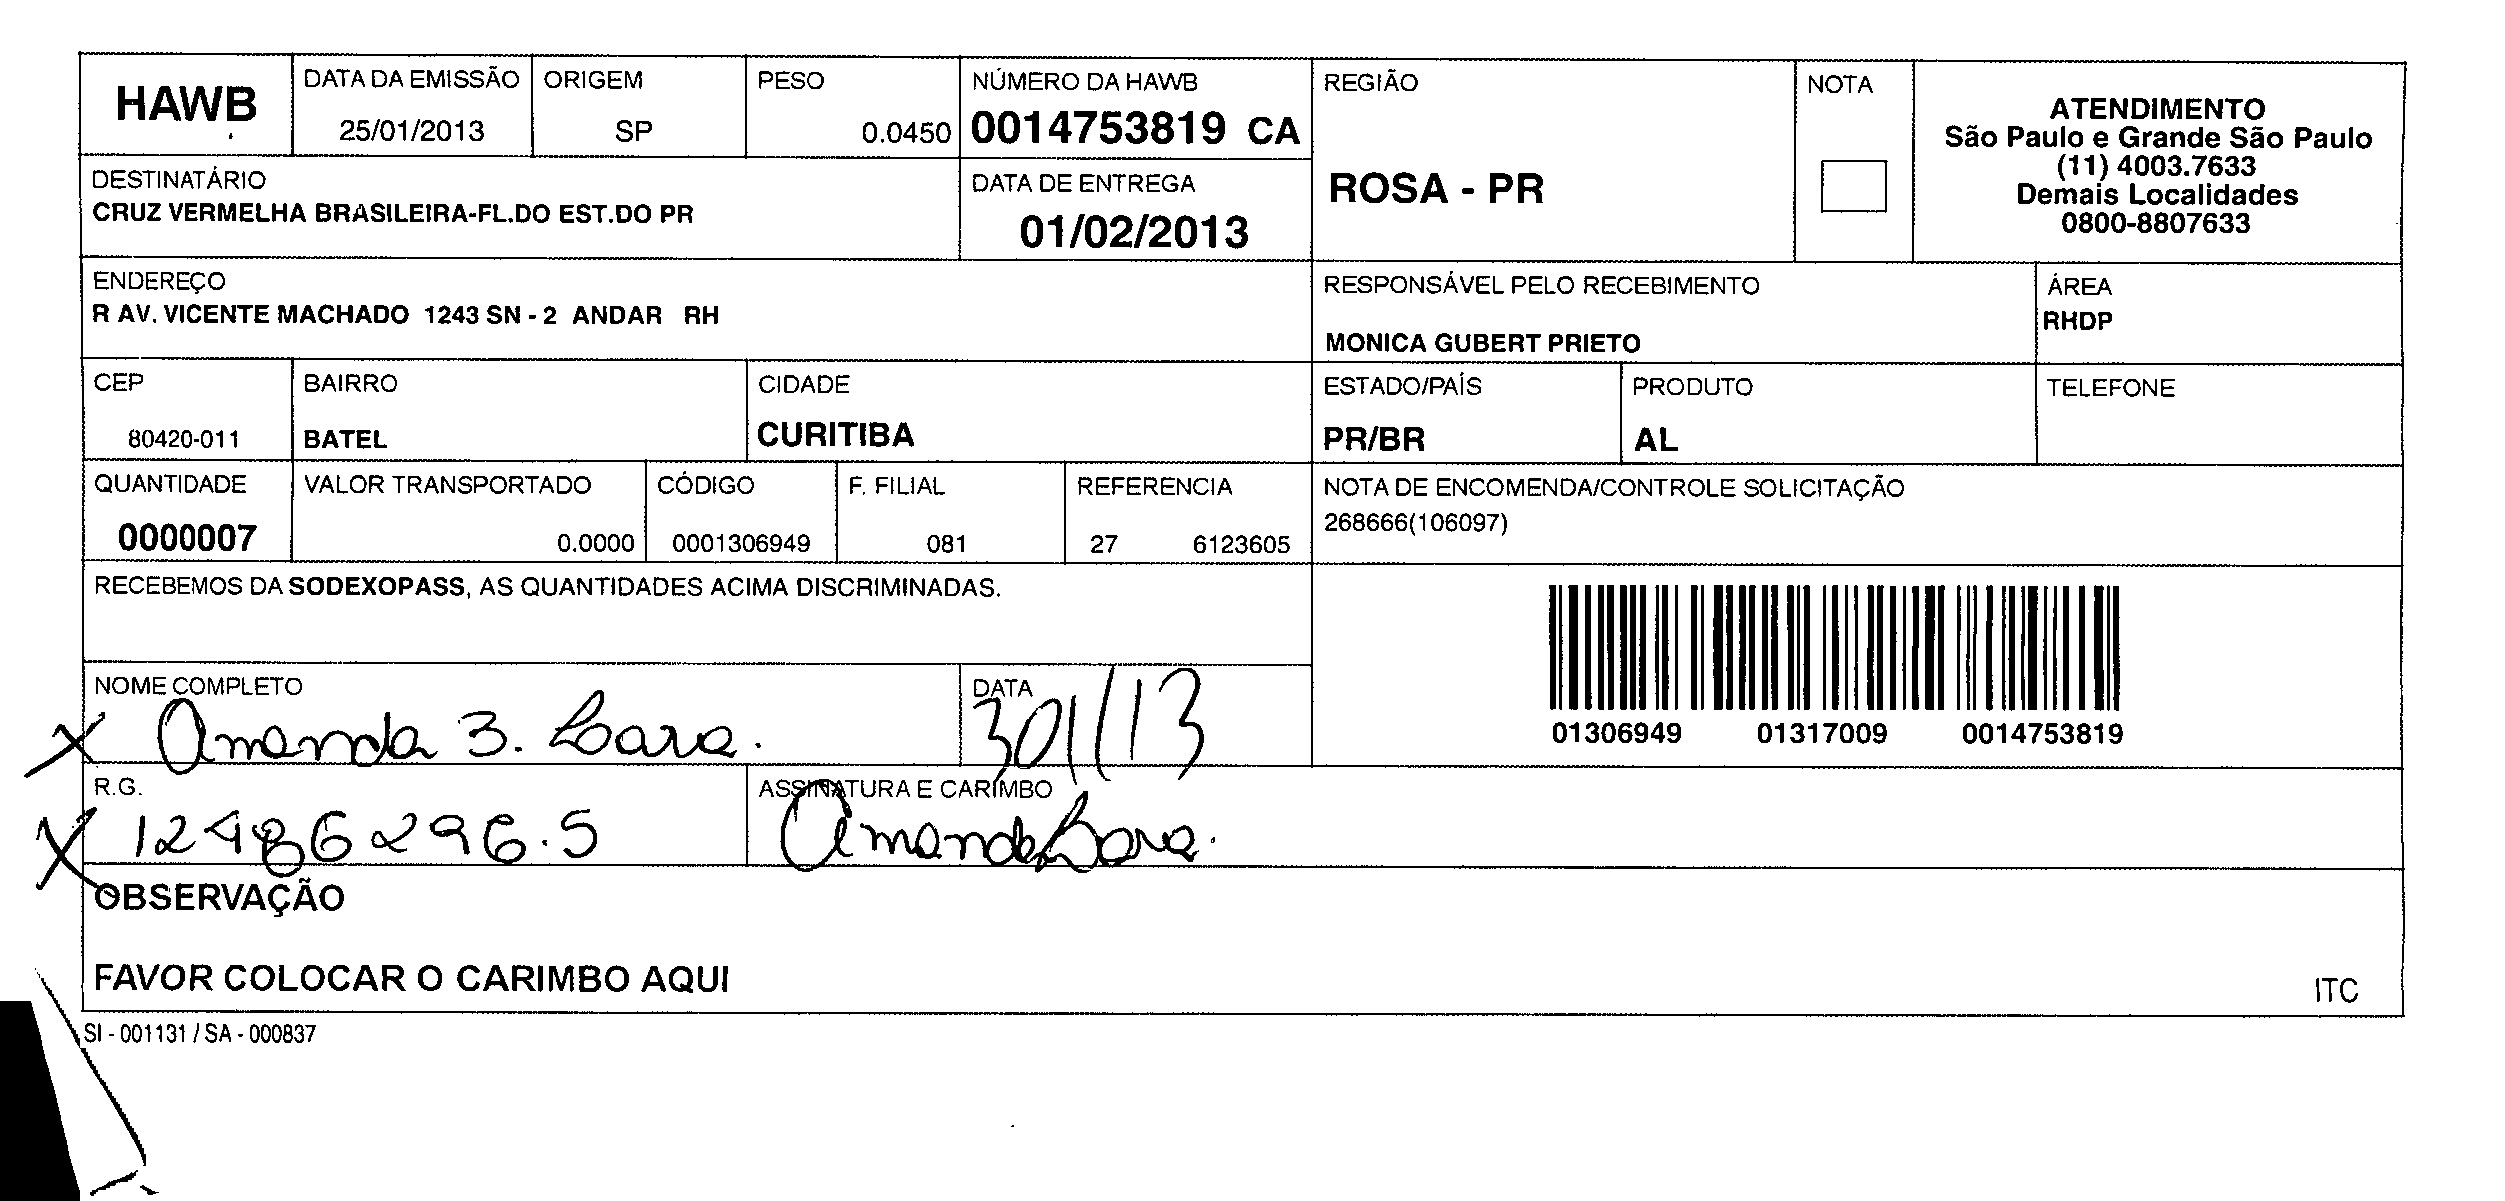 HAWB
DATA DA EMISSÃO
25/01/2013
ORIGEM
SP
PESO
0.0450
NÚMERO DA HAWB
0014753819 CA
REGIÃO
ROSA - PR
NOTA
ATENDIMENTO
São Paulo e Grande São Paulo
(11) 4003.7633
Demais Localidades
0800-8807633
DESTINATÁRIO
CRUZ VERMELHA BRASILEIRA-FL.DO EST.DO PR
DATA DE ENTREGA
01/02/2013
ENDEREÇO
R AV. VICENTE MACHADO 1243 SN - 2 ANDAR RH
RESPONSÁVEL PELO RECEBIMENTO
MONICA GUBERT PRIETO
ÁREA
RHDP
CEP
80420-011
BAIRRO
BATEL
CIDADE
CURITIBA
ESTADO/PAÍS
PR/BR
PRODUTO
AL
TELEFONE
QUANTIDADE
0000007
VALOR TRANSPORTADO
0.0000
CÓDIGO
0001306949
F. FILIAL
081
REFERENCIA
27 6123605
NOTA DE ENCOMENDA/CONTROLE SOLICITAÇÃO
268666(106097)
RECEBEMOS DA SODEXOPASS, AS QUANTIDADES ACIMA DISCRIMINADAS.
01306949 01317009 0014753819
NOME COMPLETO
X Amanda B. Lara.
DATA
R.G.
X 12486296.5
ASSINATURA E CARIMBO
Amanda Lara.
OBSERVAÇÃO
FAVOR COLOCAR O CARIMBO AQUI
ITC
SI - 001131 / SA - 000837